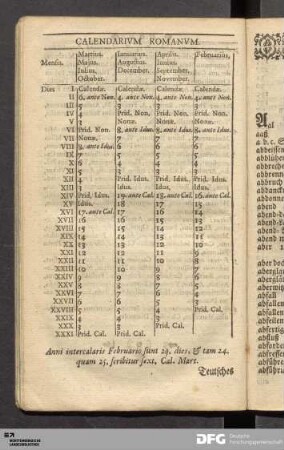 CALENDARIVM ROMANVM.
Martius, Ianuarius, Aprilis, Februarius,
Mensis. Maius, Augustus, Iunius,
Iulius, December. September,
October. November.
Dies I Calendæ. Calendæ. Calendæ. Calendæ.
II 6. ante Non. 4. ante Non. 4. ante Non. 4. ante Non.
III 5 3 3 3
IV 4 Prid. Non. Prid. Non. Prid. Non.
V 3 Nonæ. Nonæ. Nonæ.
VI Prid. Non. 8. ante Idus. 8. ante Idus. 8. ante Idus.
VII Nonæ. 7 7 7
VIII 8. ante Idus. 6 6 6
IX 7 5 5 5
X 6 4 4 4
XI 5 3 3 3
XII 4 Prid. Idus. Prid. Idus. Prid. Idus.
XIII 3 Idus. Idus. Idus.
XIV Prid. Idus. 19. ante Cal. 18. ante Cal. 16. ante Cal.
XV Idus. 18 17 15
XVI 17. ante Cal. 17 16 14
XVII 16 16 15 13
XVIII 15 15 14 12
XIX 14 14 13 11
XX 13 13 12 10
XXI 12 12 11 9
XXII 11 11 10 8
XXIII 10 10 9 7
XXIV 9 9 8 6
XXV 8 8 7 5
XXVI 7 7 6 4
XXVII 6 6 5 3
XXVIII 5 5 4 Prid. Cal.
XXIX 4 4 3
XXX 3 3 Prid. Cal.
XXXI Prid. Cal. Prid. Cal.
Anni intercalaris Februario sunt 29. dies, & tam 24.
quam 25. scribitur sext. Cal. Mart.
Teutsches
DFG Deutsche
Forschungsgemeinschaft